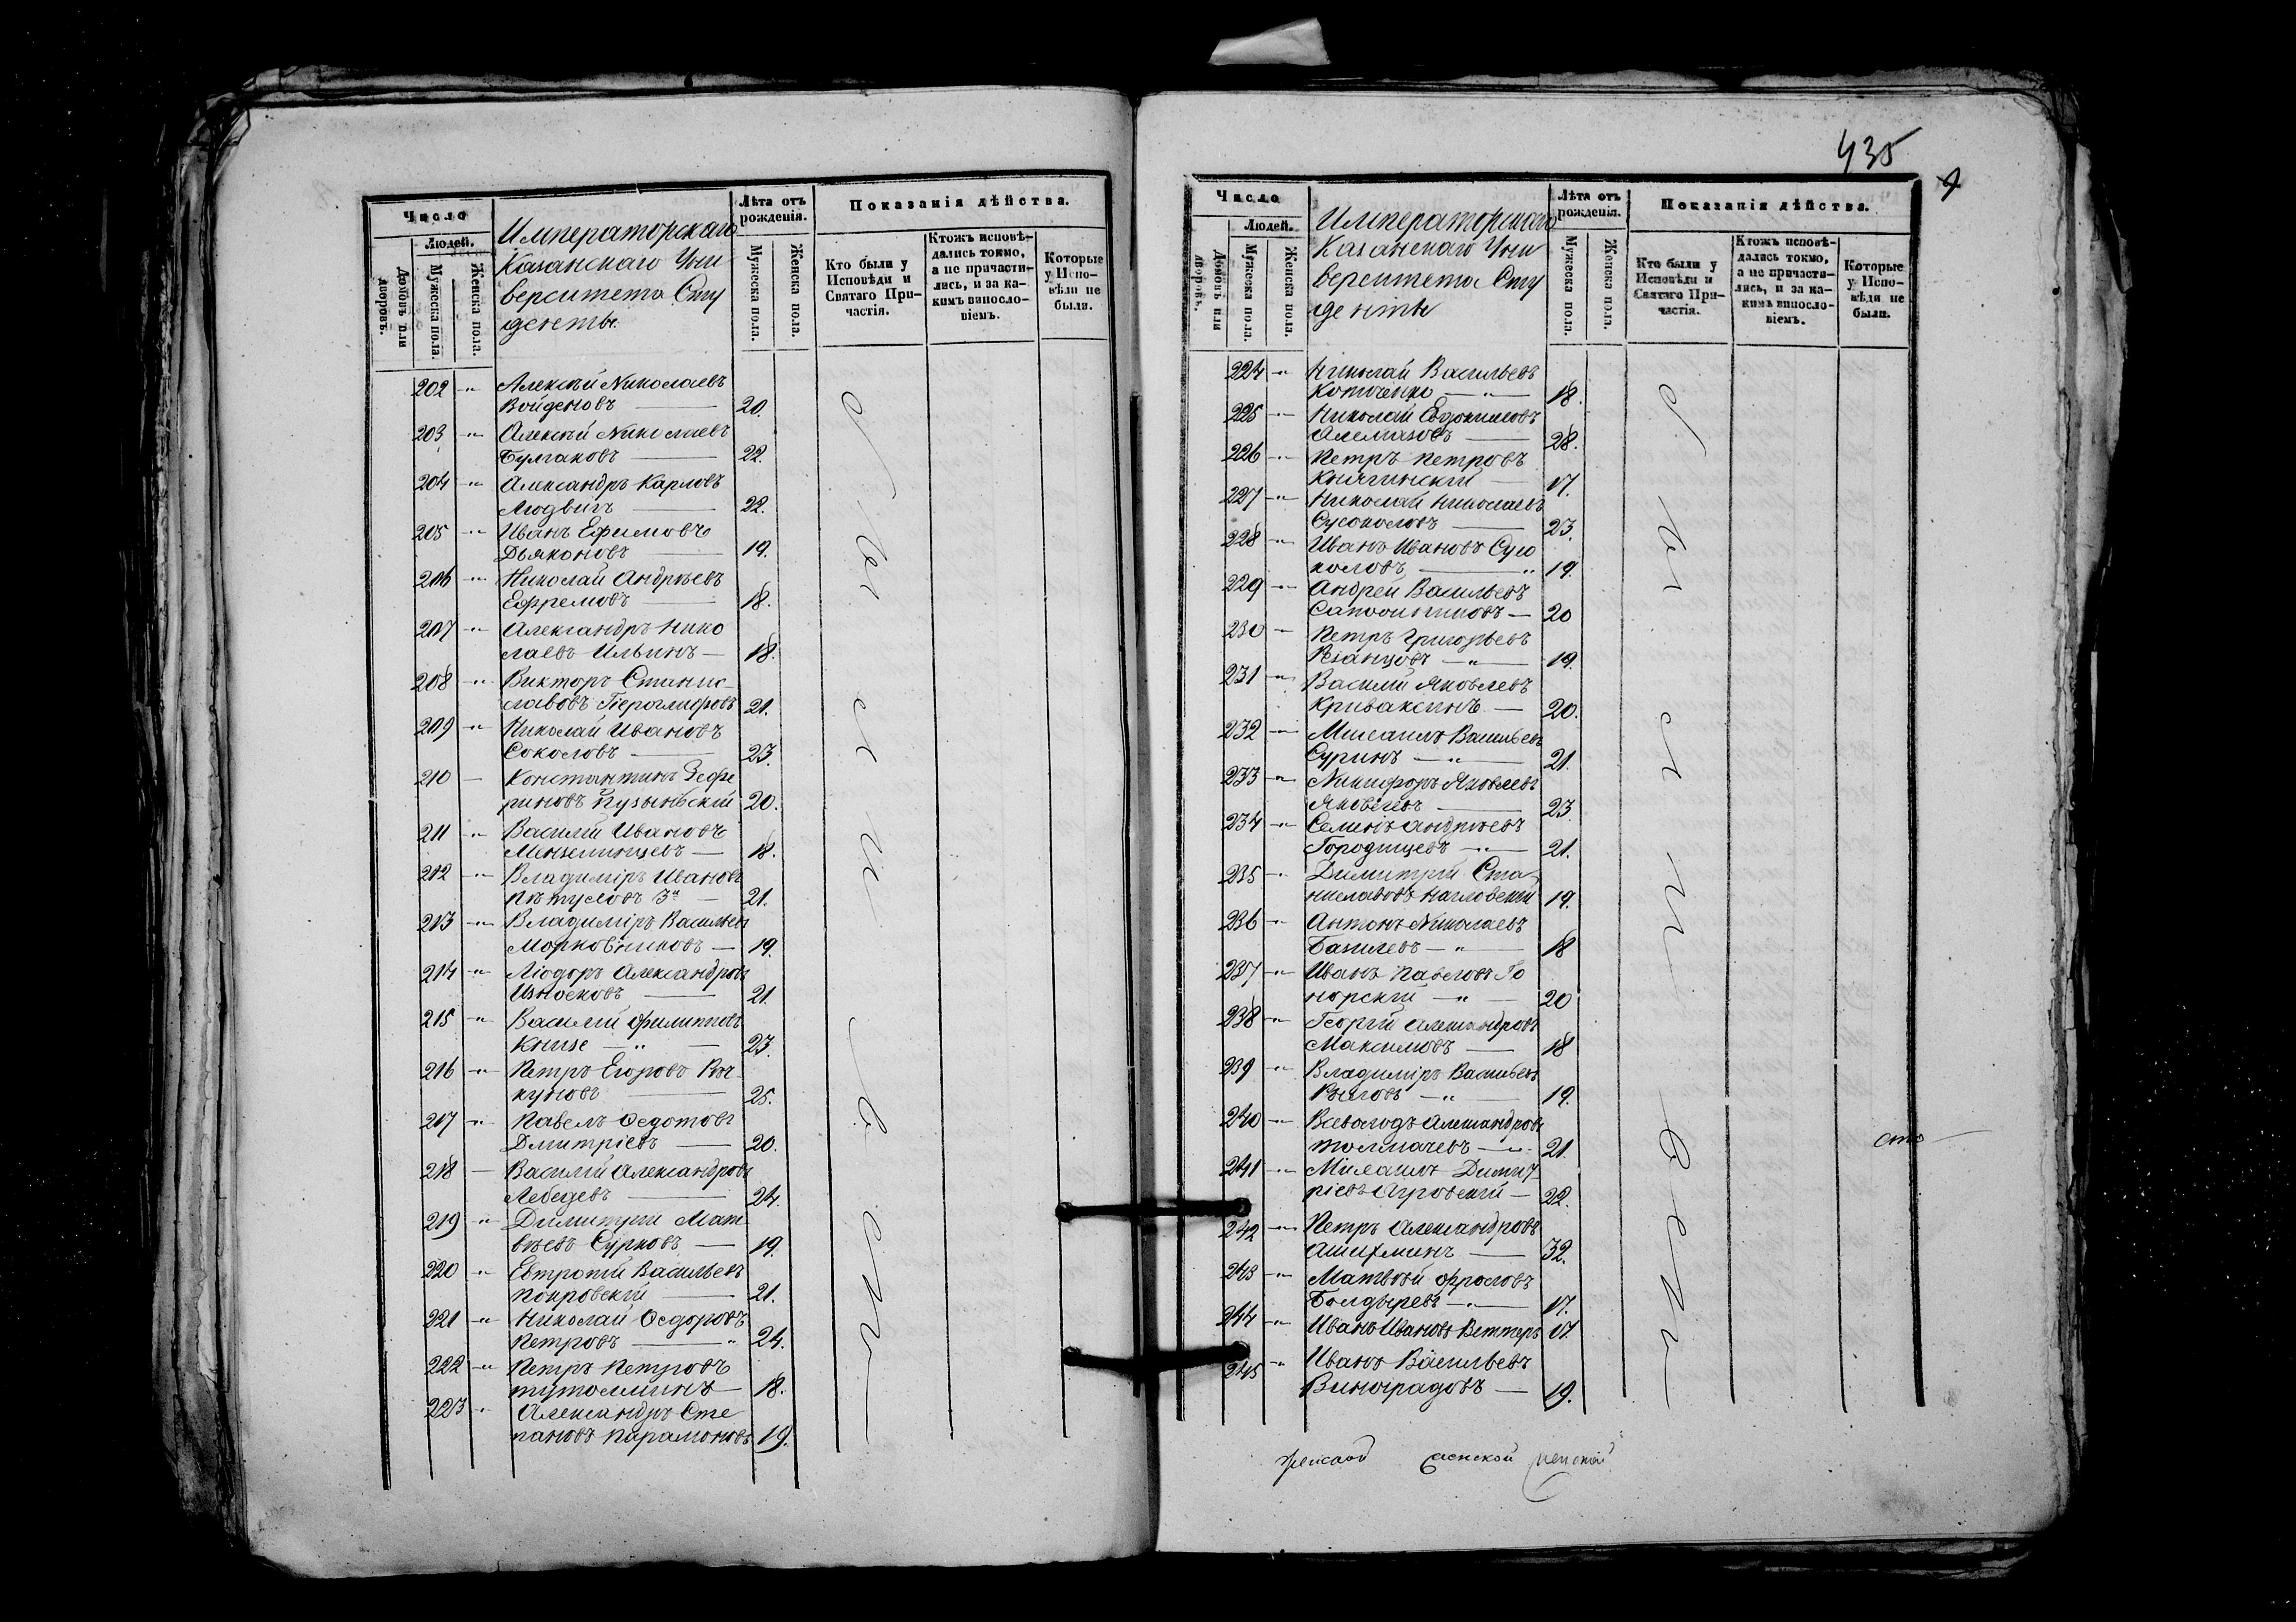 435
9
Число
Людей.
Домовъ или дворовъ.
Мужеска пола.
Женска пола.
Императорскаго
Казанскаго Уни
верситета Сту
денты.
Лѣта отъ рожденія.
Мужеска пола.
Женска пола.
Показанія дѣйства.
Кто были у Исповѣди и Святаго Причастія.
Ктожъ исповѣдались токмо, а не причастились, и за какимъ винословіемъ.
Которые у Исповѣди не были.
202 " Алексѣй Николаевъ
Войденовъ — 20.
203 " Алексѣй Николаевъ
Булгаковъ — 22.
204 " Александръ Карловъ
Людвигъ — 22.
205 " Иванъ Ефимовъ
Дьяконовъ — 19.
206 " Николай Андреевъ
Ефремовъ — 18.
207 " Александръ Нико
лаевъ Ильинъ — 18.
208 " Викторъ Станис-
лавовъ 21.
209 " Николай Ивановъ
Соколовъ — 23.
210 — Константинъ Зефе
риновъ 20.
211 " Василій Ивановъ
Мензелинцевъ — 18.
212 " Владиміръ Ивановъ
Пѣтуховъ 3й — 21.
213 " Владиміръ Васильевъ
Морковниковъ — 19.
214 " Ліодоръ Александровъ
Износковъ — 21.
215 " Василій Филипповъ
Книзе — " — 23.
216 " Петръ Егоровъ
куновъ — 25.
217 " Павелъ Ѳедотовъ
Дмитріевъ — 20.
218 — Василій Александровъ
Лебедевъ — 24.
219 " Димитрій Мат
вѣевъ Сурковъ — 19.
220 " Евтропій Васильевъ
Покровскій — 21.
221 " Николай Ѳедоровъ
Петровъ — " 24.
222 " Петръ Петровъ
Тутолминъ — 18.
223 " Александръ Сте
пановъ Парамоновъ 19.
Число
Людей.
Домовъ или дворовъ.
Мужеска пола.
Женска пола.
Императорскаго
Казанскаго Уни
верситета Сту
денты
Лѣта отъ рожденія.
Мужеска пола.
Женска пола.
Показанія дѣйства.
Кто были у Исповѣди и Святаго Причастія.
Ктожъ исповѣдались токмо, а не причастились, и за какимъ винословіемъ.
Которые у Исповѣди не были.
224 " Николай Васильевъ
— " — 18.
225 " Николай Евдокимовъ
Алемазовъ — 28.
226 " Петръ Петровъ
Княгинскій — 17.
227 " Николай Николаевъ
Сусоколовъ — 23.
228 " Иванъ Ивановъ Сусо
коловъ — " 19.
229 " Андрей Васильевъ
Сапожниковъ — 20
230 — Петръ Григорьевъ
Рязанцовъ — " — 19.
231 " Василій Яковлевъ
Криваксинъ — 20.
232 — Михаилъ Васильевъ
Суринъ — " — 21.
233 " Никифоръ Яковлевъ
Яковлевъ — 23.
234 " Семенъ Андреевъ
Городищевъ — " — 21.
235 " Димитрій Ста-
ниславовъ 19.
236 " Антонъ Николаевъ
Базилевъ — " — 18
237 " Иванъ Павловъ Го
норскій — " — 20
238 " Георгій Александровъ
Максимовъ — 18
239 " Владиміръ Васильевъ
— " — 19.
240 " Всеволодъ Александровъ
Толмачевъ — " — 21.
241 " Михаилъ Димит-
ріевъ — 22.
242 " Петръ Александровъ
Ашихминъ — 32.
243 " Матвѣй Фроловъ
Болдыревъ — " — 17.
244 " Иванъ Ивановъ Веттеръ 17.
245 " Иванъ Васильевъ
Виноградовъ — 19.